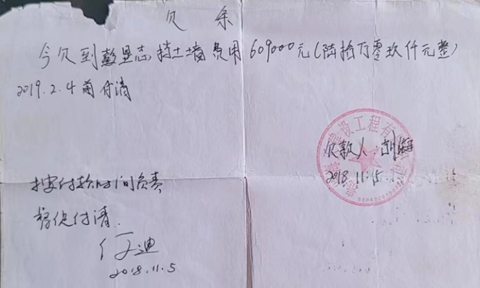 欠条
今欠到彭显志挡土墙费用609000元(陆拾万零玖仟元整)
2019.2.4前付清
建设工程有
欠款人:胡
2018.11.5
按付款时间负责
督促付清.
何迪
2018.11.5